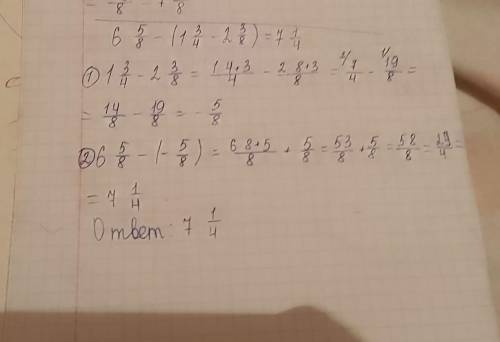 6 5/8 - (1 3/4 - 2 3/8) = 7 1/4
① 1 3/4 - 2 3/8 = 1·4+3/4 - 2·8+3/8 = ²⁾7/4 - ¹⁾19/8 =
= 14/8 - 19/8 = - 5/8
② 6 5/8 - (- 5/8) = 6·8+5/8 + 5/8 = 53/8 + 5/8 = 58/8 = 29/4 =
= 7 1/4
Ответ: 7 1/4